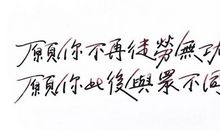 願你不再徒勞無功
願你此後與眾不同